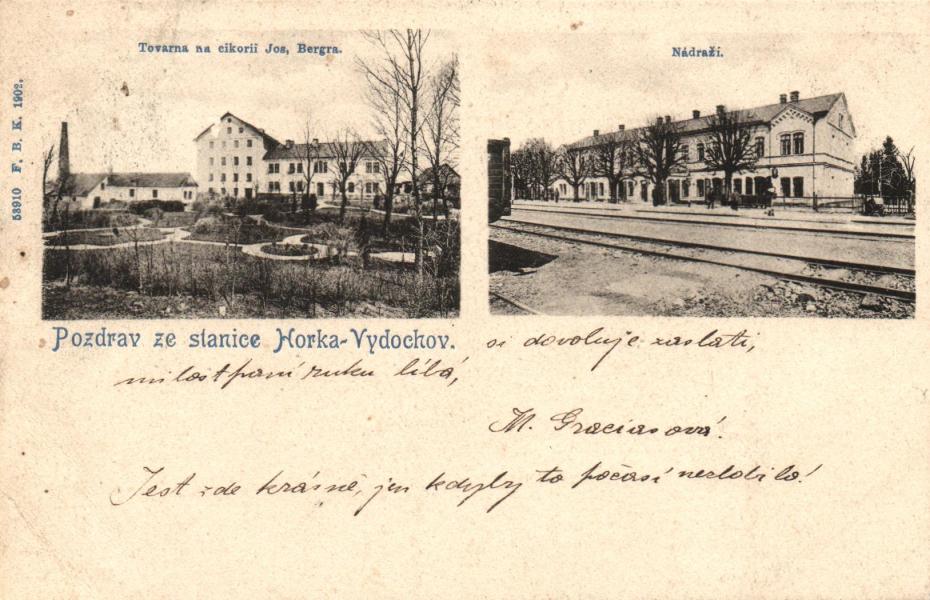 Tovarna na cikorii Jos, Bergra.
Nádraží.
53910 F. B. K. 1902.
Pozdrav ze stanice Horka-Vydochov. si dovoluje zaslati,
milostpaní ruku líbá,
M. Graciasová.
Jest zde krásně, jen kdyby to počasí nezlobilo!